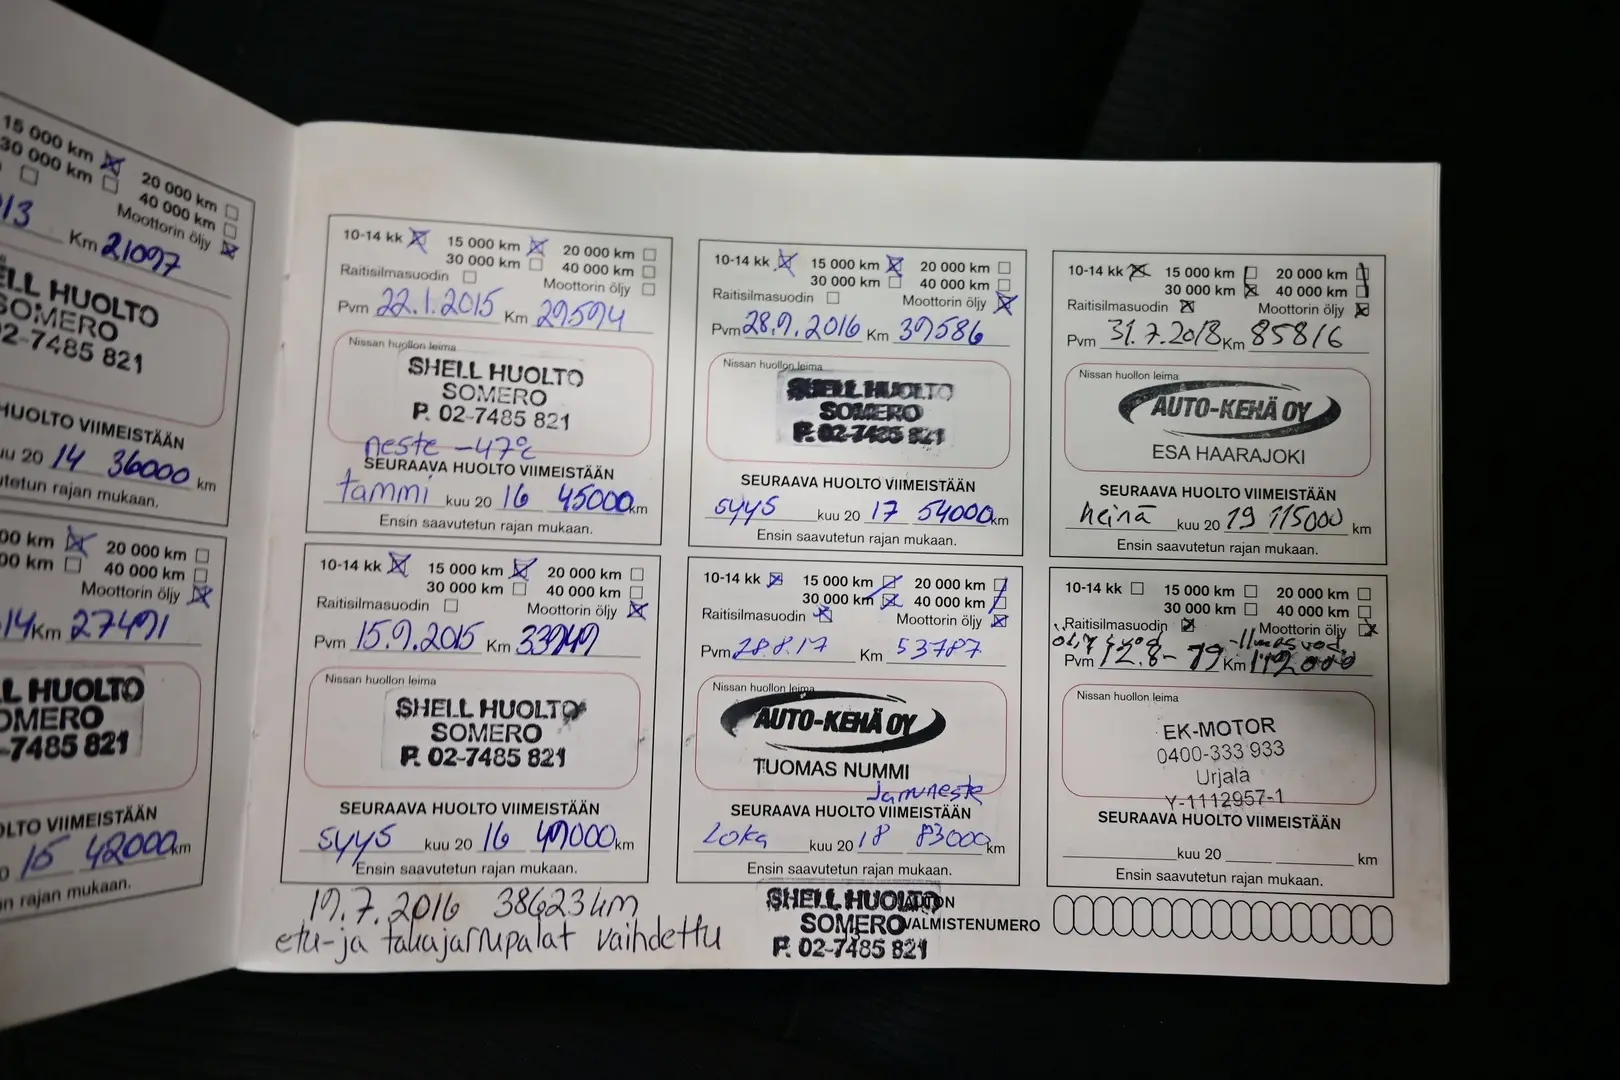 15 000 km 20 000 km
30 000 km 40 000 km
Moottorin öljy
13 Km 21097
ELL HUOLTO
SOMERO
02-7485 821
HUOLTO VIIMEISTÄÄN
uu 20 14 36000 km
utetun rajan mukaan.
00 km 20 000 km
00 km 40 000 km
Moottorin öljy
14 Km 27491
LL HUOLTO
OMERO
-7485 821
OLTO VIIMEISTÄÄN
0 15 42000 km
n rajan mukaan.
10-14 kk 15 000 km 20 000 km
30 000 km 40 000 km
Raitisilmasuodin Moottorin öljy
Pvm 22.1.2015 Km 29594
Nissan huollon leima
SHELL HUOLTO
SOMERO
P. 02-7485 821
neste -47°C
SEURAAVA HUOLTO VIIMEISTÄÄN
tammi kuu 20 16 45000 km
Ensin saavutetun rajan mukaan.
10-14 kk 15 000 km 20 000 km
30 000 km 40 000 km
Raitisilmasuodin Moottorin öljy
Pvm 15.9.2015 Km 33949
Nissan huollon leima
SHELL HUOLTO
SOMERO
P. 02-7485 821
SEURAAVA HUOLTO VIIMEISTÄÄN
syys kuu 20 16 49000 km
Ensin saavutetun rajan mukaan.
19.7.2016 38623 km
etu- ja takajarrupalat vaihdettu
10-14 kk 15 000 km 20 000 km
30 000 km 40 000 km
Raitisilmasuodin Moottorin öljy
Pvm 28.9.2016 Km 39586
Nissan huollon leima
SHELL HUOLTO
SOMERO
P. 02-7485 821
SEURAAVA HUOLTO VIIMEISTÄÄN
syys kuu 20 17 54000 km
Ensin saavutetun rajan mukaan.
10-14 kk 15 000 km 20 000 km
30 000 km 40 000 km
Raitisilmasuodin Moottorin öljy
Pvm 28.8.17 Km 53787
Nissan huollon leima
AUTO-KEHÄ OY
TUOMAS NUMMI
jarruneste
SEURAAVA HUOLTO VIIMEISTÄÄN
Loka kuu 20 18 83000 km
Ensin saavutetun rajan mukaan.
SHELL HUOLTO
SOMERO
P. 02-7485 821
VALMISTENUMERO
10-14 kk 15 000 km 20 000 km
30 000 km 40 000 km
Raitisilmasuodin Moottorin öljy
Pvm 31.7.2018 Km 85816
Nissan huollon leima
AUTO-KEHÄ OY
ESA HAARAJOKI
SEURAAVA HUOLTO VIIMEISTÄÄN
heinä kuu 20 19 115000 km
Ensin saavutetun rajan mukaan.
10-14 kk 15 000 km 20 000 km
30 000 km 40 000 km
Raitisilmasuodin Moottorin öljy
Pvm 12.8-19 Km 112000
Nissan huollon leima
EK-MOTOR
0400-333 933
Urjala
Y-1112957-1
SEURAAVA HUOLTO VIIMEISTÄÄN
kuu 20 km
Ensin saavutetun rajan mukaan.